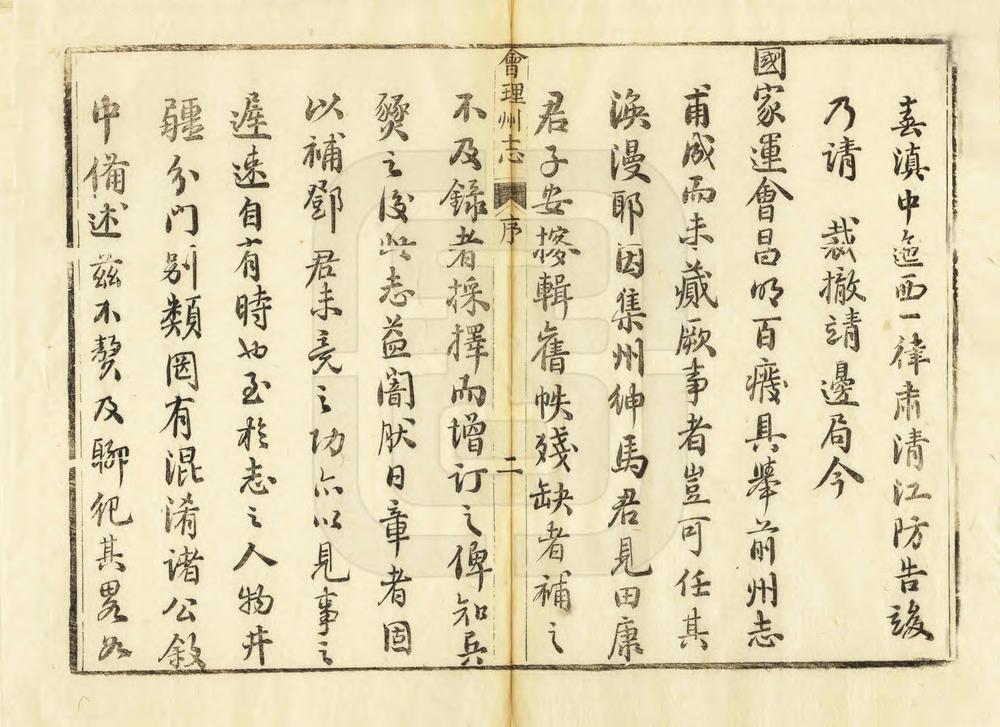 春滇中迤西一律肅清江防告竣
乃請 裁撤靖邊局今
國家運會昌明百癈具舉前州志
甫成而未蕆厥事者豈可任其
渙漫耶因集州紳馬君見田康
君子安搜輯舊帙殘缺者補之
會理州志 序 二
不及錄者採擇而增訂之俾知兵
燹之後此志益闇然日章者固
以補鄧君未竟之功亦以見事之
遲速自有時也至於志之人物井
疆分門別類罔有混淆諸公敘
中備述茲不贅及聊紀其畧如